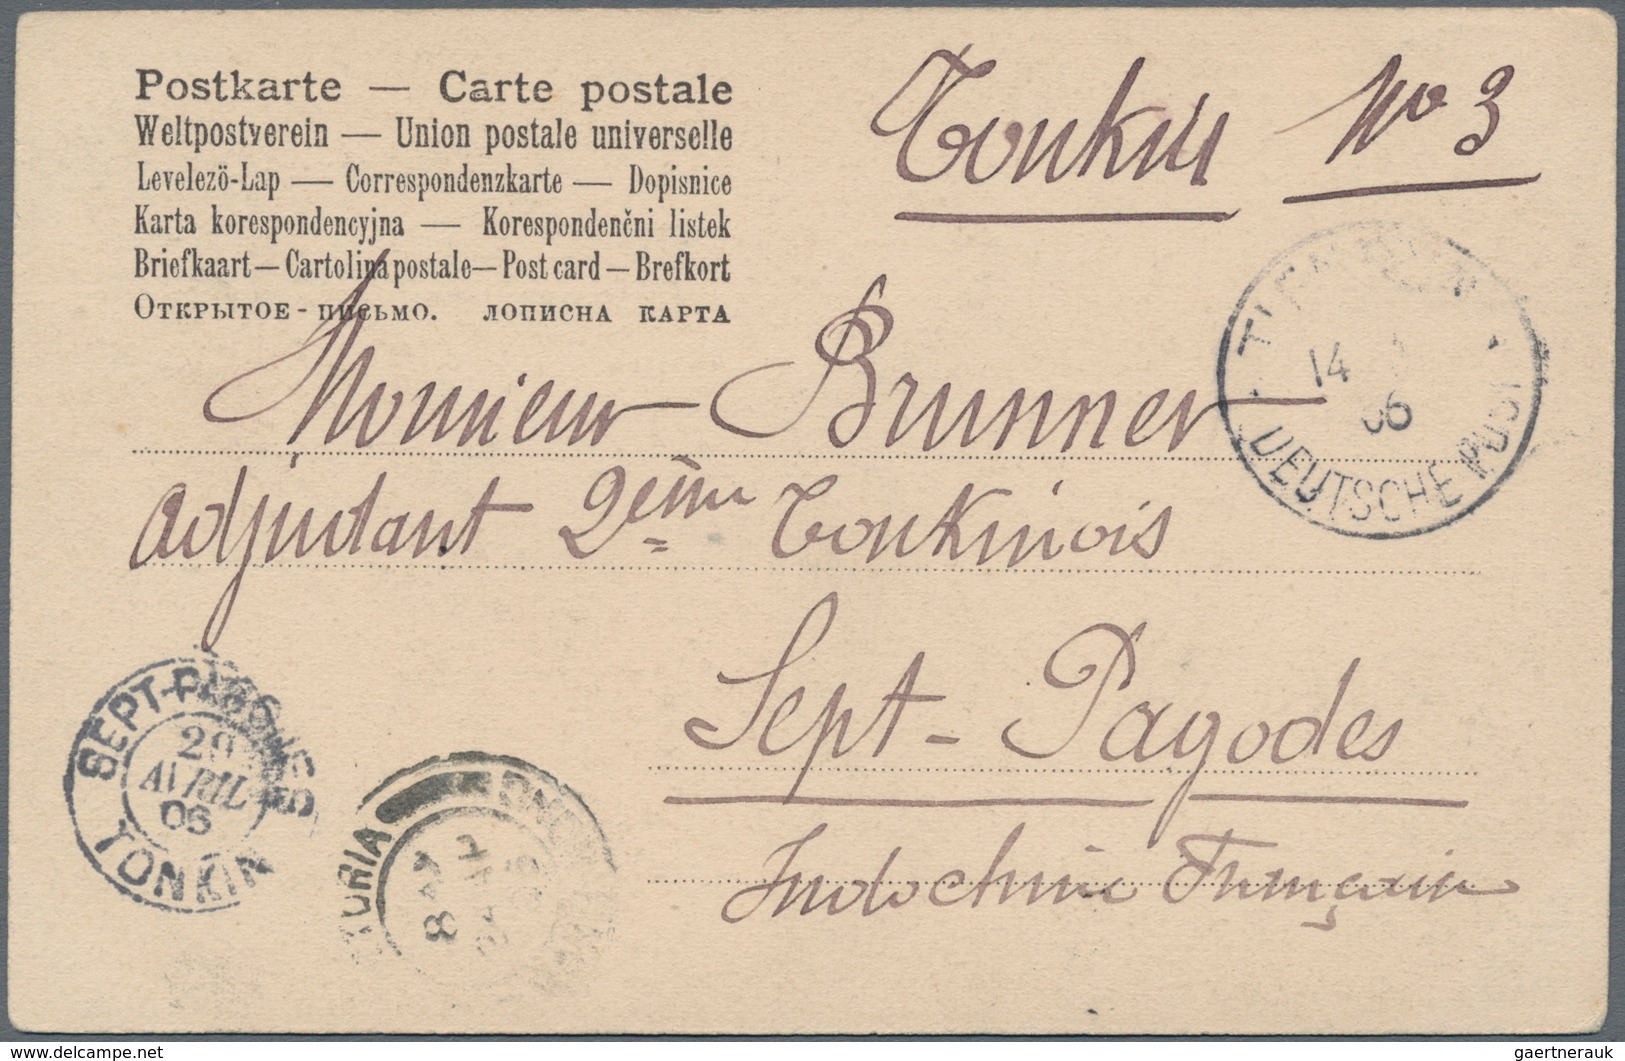 Postkarte — Carte postale
Weltpostverein — Union postale universelle
Levelezö-Lap — Correspondenzkarte — Dopisnice
Karta korespondencyjna — Korespondenčni listek
Briefkaart — Cartolina postale — Post card — Brefkort
Открытое - письмо. лописна карта
Tonkin No 3
Monsieur Brunner
adjudant 2ème Tonkinois
Sept-Pagodes
Indochine Française
14
06
DEUTSCHE POST
SEPT-PAGODES
29
AVRIL
06
TONKIN
TORIA
8
delcampe.net
gaertnerauk